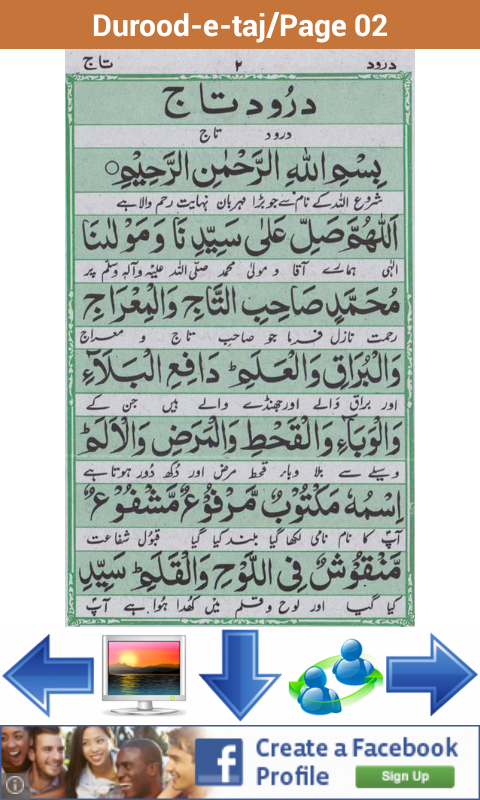 Durood-e-taj/Page 02
درود ٢ تاج
درُود تاج
درود تاج
بِسْمِ اللهِ الرَّحْمٰنِ الرَّحِيْمِ
شروع اللہ کے نام سے جو بڑا مہربان نہایت رحم والا ہے
اَللّٰهُمَّ صَلِّ عَلٰى سَيِّدِنَا وَمَوْلٰنَا
الٰہی ہمارے آقا و مولیٰ محمد صلی اللہ علیہ وآلہ وسلم پر
مُحَمَّدٍ صَاحِبِ التَّاجِ وَالْمِعْرَاجِ
رحمت نازل فرما جو صاحب تاج و معراج
وَالْبُرَاقِ وَالْعَلَمِ ؕ دَافِعِ الْبَلَآءِ
اور براق والے اور جھنڈے والے ہیں جن کے
وَالْوَبَآءِ وَالْقَحْطِ وَالْمَرَضِ وَالْاَلَمِ ؕ
وسیلے سے بلا وباء قحط مرض اور دُکھ دُور ہوتا ہے
اِسْمُهٗ مَكْتُوْبٌ مَّرْفُوْعٌ مَّشْفُوْعٌ
آپؐ کا نام نامی لکھا گیا بلند کیا گیا قبول شفاعت
مَّنْقُوْشٌ فِى اللَّوْحِ وَالْقَلَمِ ؕ سَيِّدِ
کیا گیا اور لوح و قلم میں کھدا ہوا ہے آپؐ
Create a Facebook
Profile
Sign Up